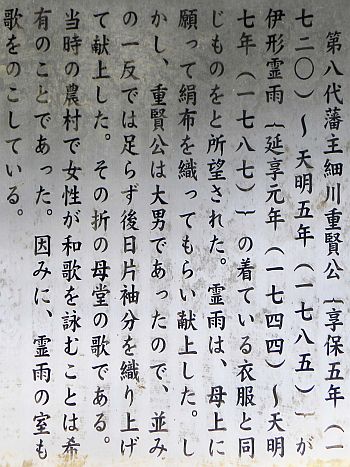 第八代藩主細川重賢公（享保五年（一
七二〇）～天明五年（一七八五））が
伊形霊雨（延享元年（一七四四）～天明
七年（一七八七））の着ている衣服と同
じものをと所望された。霊雨は、母上に
願って絹布を織ってもらい献上した。し
かし、重賢公は大男であったので、並み
の一反では足らず後日片袖分を織り上げ
て献上した。その折の母堂の歌である。
当時の農村で女性が和歌を詠むことは希
有のことであった。因みに、霊雨の室も
歌をのこしている。